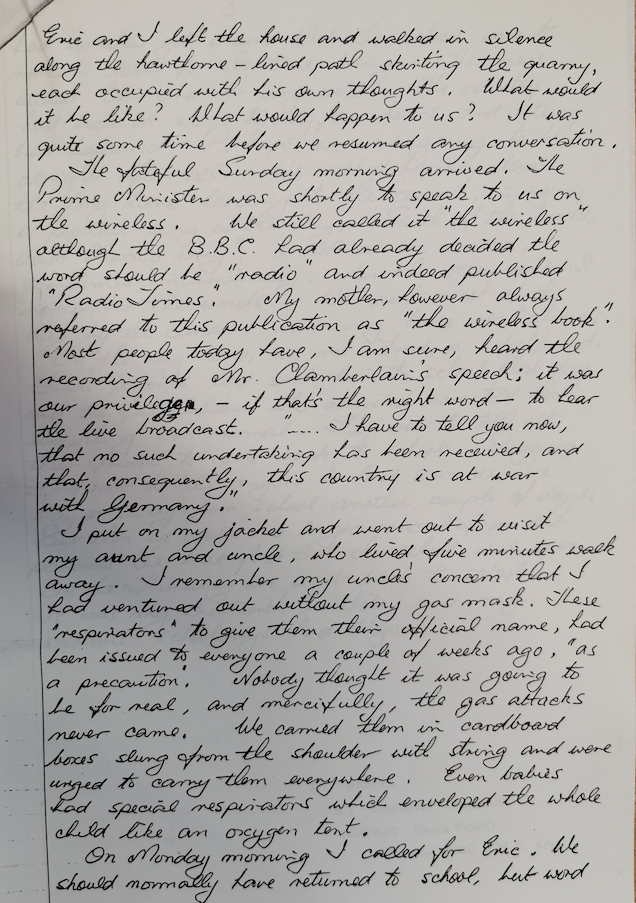 Eric and I left the house and walked in silence
along the hawthorne-lined path skirting the quarry,
each occupied with his own thoughts. What would
it be like? What would happen to us? It was
quite some time before we resumed any conversation.
The fateful Sunday morning arrived. The
Prime Minister was shortly to speak to us on
the wireless. We still called it "the wireless"
although the B.B.C. had already decided the
word should be "radio" and indeed published
"Radio Times". My mother, however always
referred to this publication as "the wireless book".
Most people today have, I am sure, heard the
recording of Mr. Chamberlain's speech; it was
our privilege, - if that's the right word - to hear
the live broadcast. ".... I have to tell you now,
that no such undertaking has been received, and
that, consequently, this country is at war
with Germany."
I put on my jacket and went out to visit
my aunt and uncle, who lived five minutes walk
away. I remember my uncle's concern that I
had ventured out without my gas mask. These
"respirators" to give them their official name, had
been issued to everyone a couple of weeks ago, "as
a precaution". Nobody thought it was going to
be for real, and mercifully, the gas attacks
never came. We carried them in cardboard
boxes slung from the shoulder with string and were
urged to carry them everywhere. Even babies
had special respirators which enveloped the whole
child like an oxygen tent.
On Monday morning I called for Eric. We
should normally have returned to school, but word